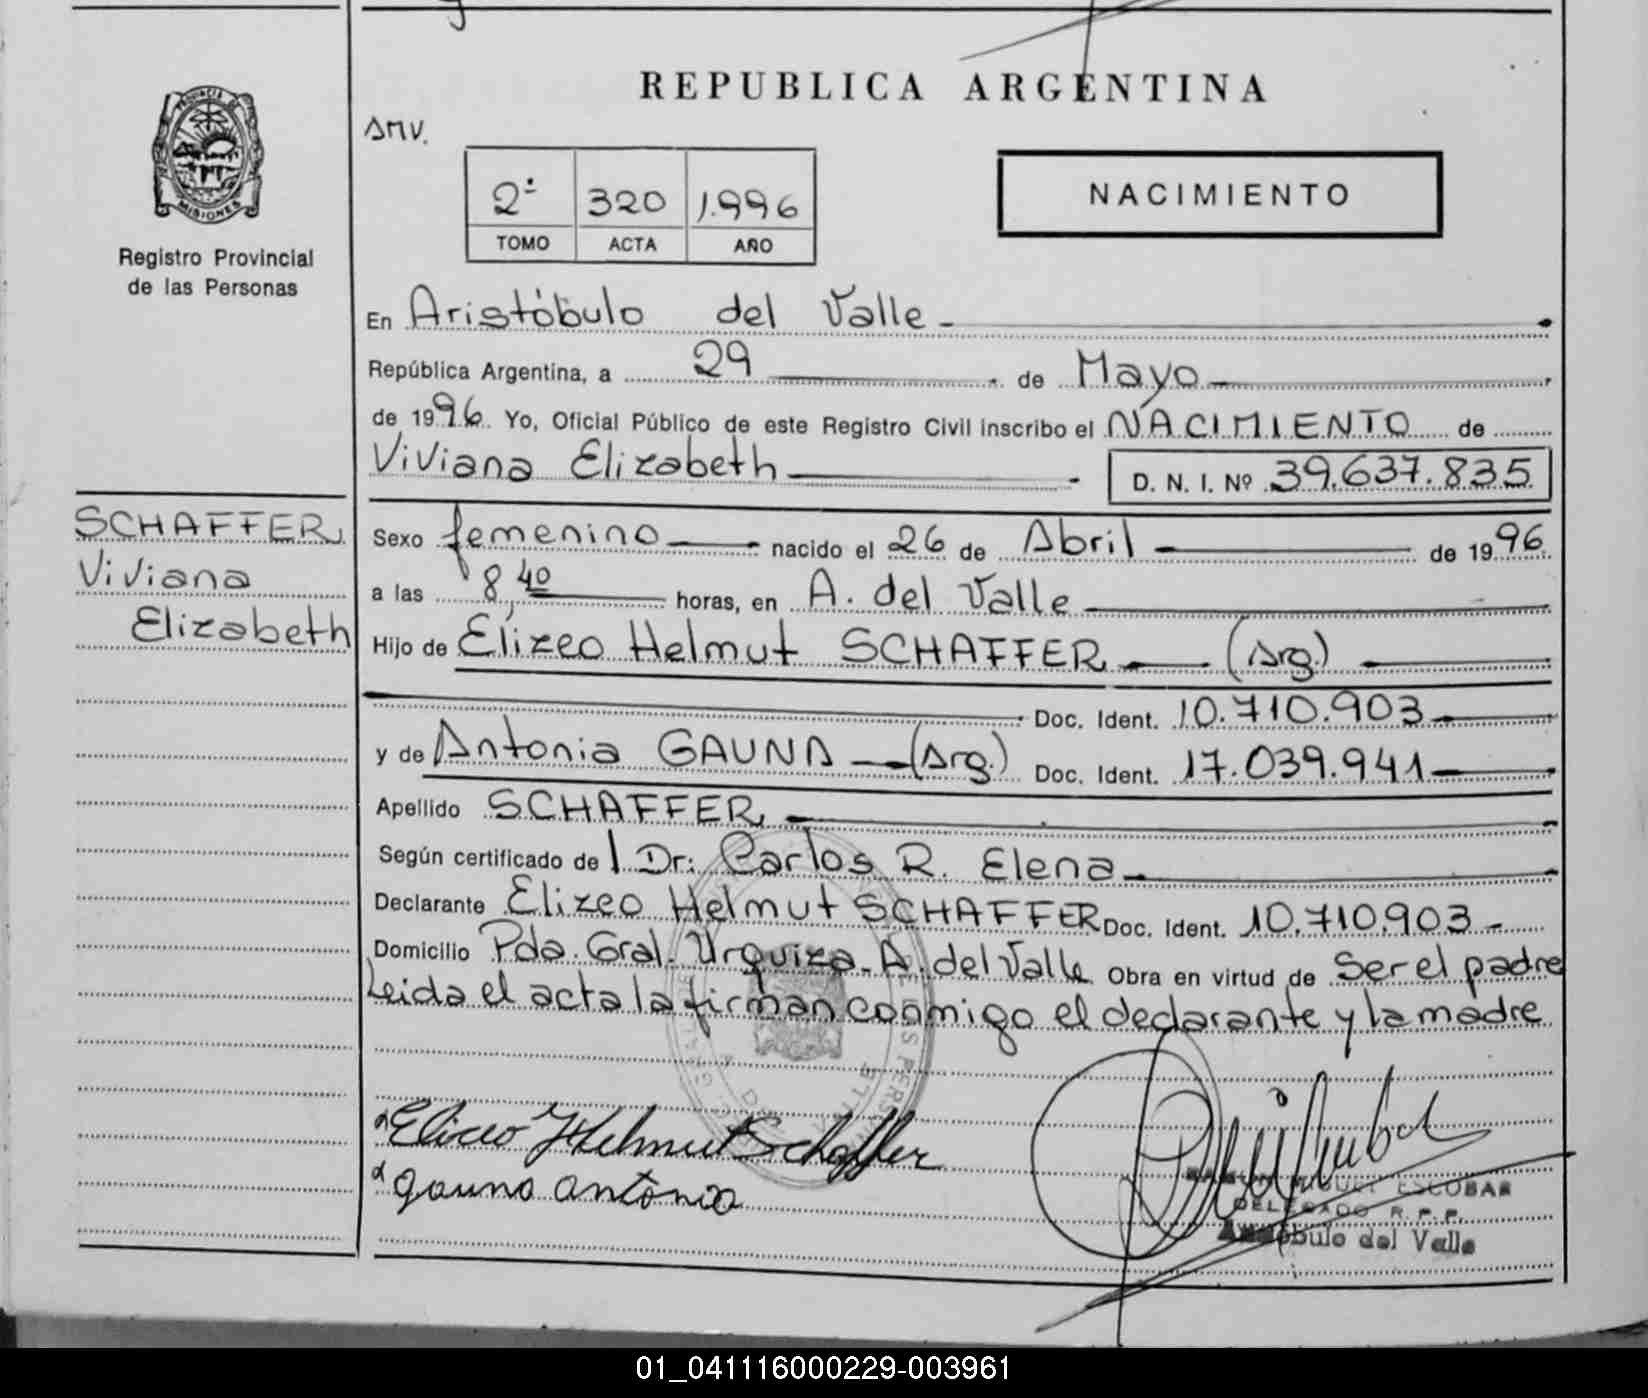 REPUBLICA ARGENTINA
PROVINCIA DE
MISIONES
Registro Provincial
de las Personas
SMV.
2º 320 1.996
TOMO ACTA AÑO
NACIMIENTO
En Aristóbulo del Valle
República Argentina, a 29 de Mayo
de 1996. Yo, Oficial Público de este Registro Civil inscribo el NACIMIENTO de
Viviana Elizabeth D. N. I. Nº 39.637.835
SCHAFFER
Viviana
Elizabeth
Sexo femenino nacido el 26 de Abril de 1996
a las 8,40 horas, en A. del Valle
Hijo de Elizeo Helmut SCHAFFER (Arg.)
Doc. Ident. 10.710.903
y de Antonia GAUNA (Arg.) Doc. Ident. 17.039.941
Apellido SCHAFFER
Según certificado de l Dr: Carlos R. Elena
Declarante Elizeo Helmut SCHAFFER Doc. Ident. 10.710.903
Domicilio Pda. Gral. Urquiza - A. del Valle Obra en virtud de Ser el padre
Leida el acta la firman conmigo el declarante y la madre
Eliceo Helmut Schaffer
gauna antonia
MIGUEL ESCOBAR
DELEGADO R.P.P.
Aristóbulo del Valle
01_041116000229-003961